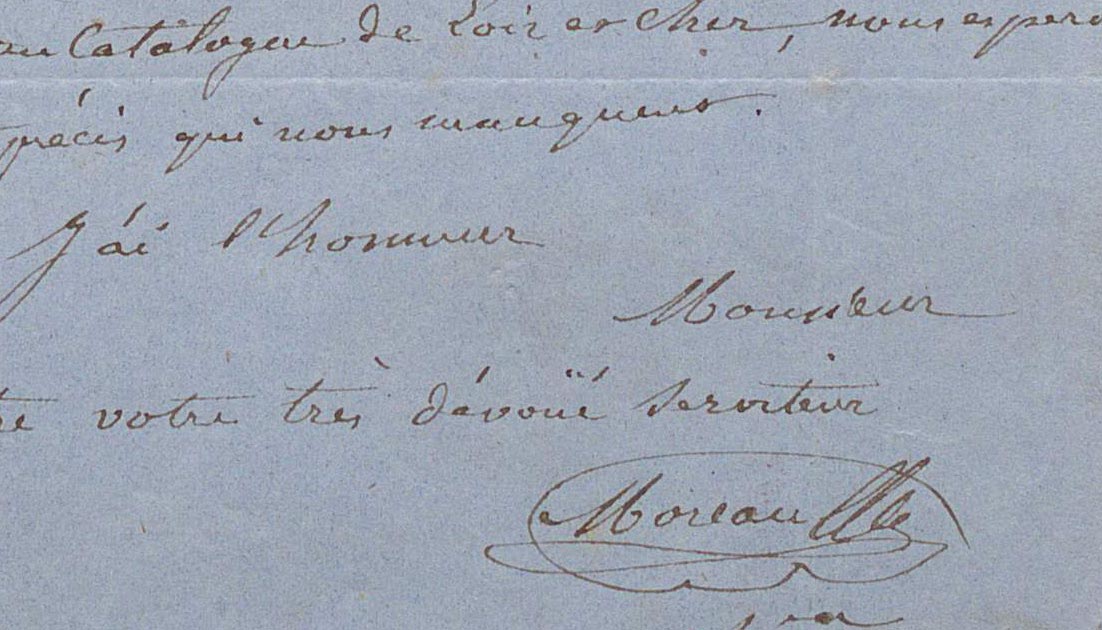 au Catalogue de Loir et Cher, nous espero
précis qui nous manquent.
J'ai l'honneur
Monsieur
tre votre très dévoüé serviteur
Moreau